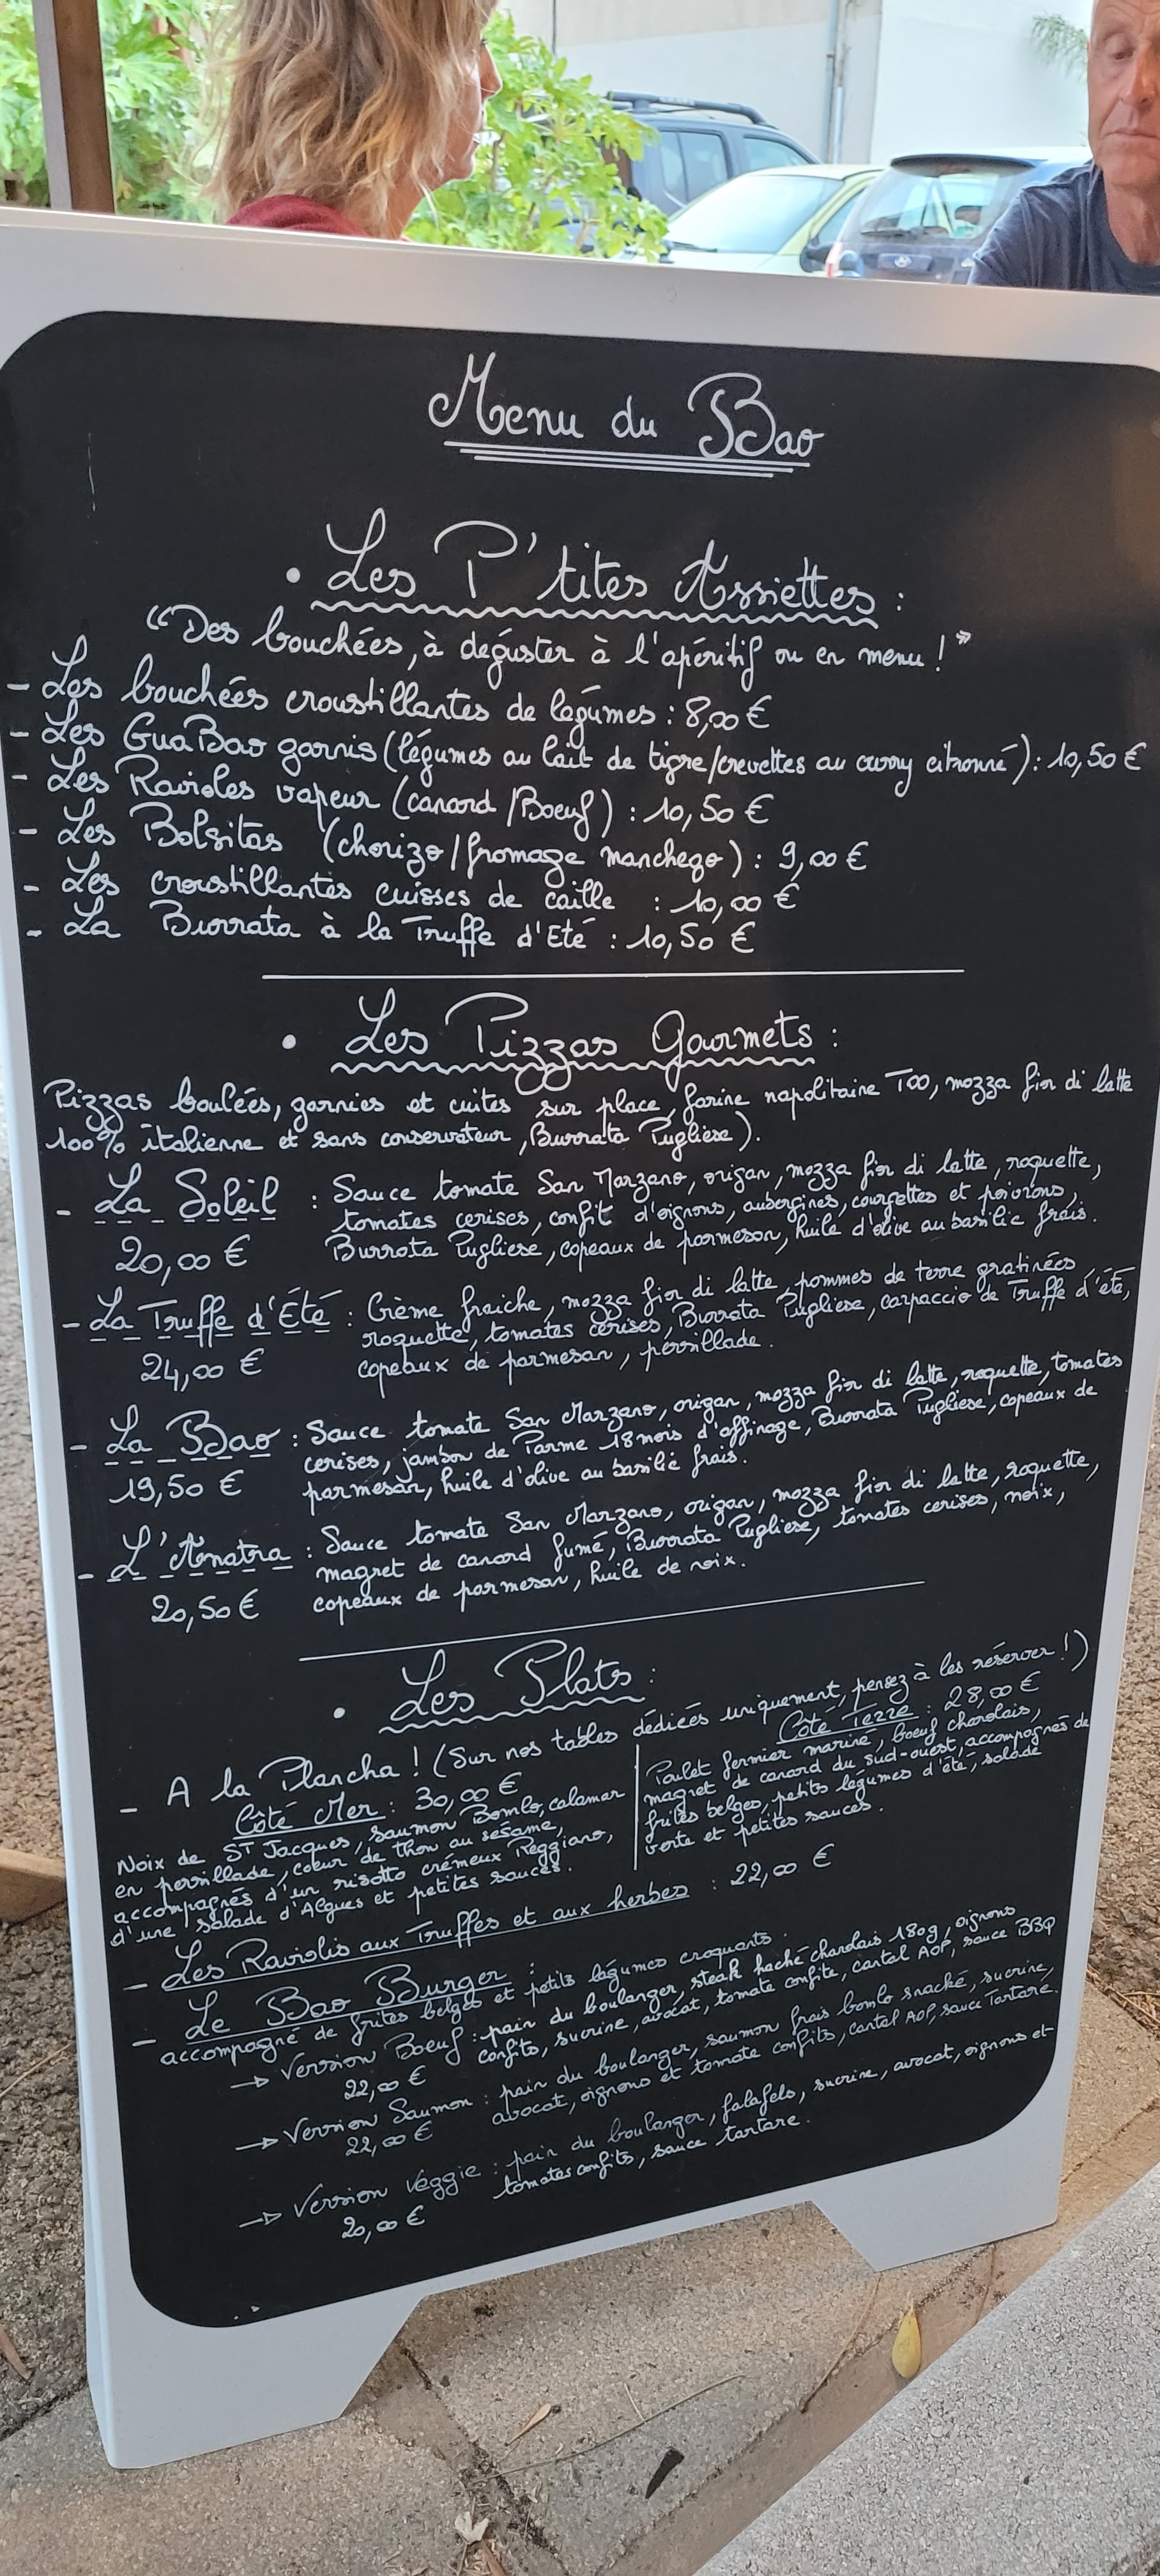 Menu du Bao
• Les P'tites Assiettes :
"Des bouchées, à déguster à l'apéritif ou en menu !"
- Les bouchées croustillantes de légumes : 8,00 €
- Les GuaBao garnis (légumes au lait de tigre/crevettes au curry citronné) : 10,50 €
- Les Ravioles vapeur (canard/Boeuf) : 10,50 €
- Les Bolsitas (chorizo/fromage manchego) : 9,00 €
- Les croustillantes cuisses de caille : 10,00 €
- La Burrata à la Truffe d'Eté : 10,50 €
• Les Pizzas Gourmets :
Pizzas boulées, garnies et cuites sur place, farine napolitaine T00, mozza fior di latte
100% italienne et sans conservateur, Burrata Pugliese).
- La Soleil : Sauce tomate San Marzano, origan, mozza fior di latte, roquette,
tomates cerises, confit d'oignons, aubergines, courgettes et poivrons,
20,00 € Burrata Pugliese, copeaux de parmesan, huile d'olive au basilic frais.
- La Truffe d'Été : Crème fraiche, mozza fior di latte, pommes de terre gratinées,
roquette, tomates cerises, Burrata Pugliese, carpaccio de Truffe d'été,
24,00 € copeaux de parmesan, persillade.
- La Bao : Sauce tomate San Marzano, origan, mozza fior di latte, roquette, tomates
cerises, jambon de Parme 18 mois d'affinage, Burrata Pugliese, copeaux de
19,50 € parmesan, huile d'olive au basilic frais.
- L'Amatra : Sauce tomate San Marzano, origan, mozza fior di latte, roquette,
magret de canard fumé, Burrata Pugliese, tomates cerises, noix,
20,50 € copeaux de parmesan, huile de noix.
• Les Plats :
- A la Plancha ! (Sur nos tables dédiées uniquement, pensez à les réserver !)
Côté Mer : 30,00 €
Noix de ST Jacques, saumon Bomlo, calamar
en persillade, coeur de thon au sésame,
accompagnés d'un risotto crémeux Reggiano,
d'une salade d'Algues et petites sauces.
Côté Terre : 28,00 €
Poulet fermier mariné, boeuf charolais,
magret de canard du sud-ouest, accompagnés de
frites belges, petits légumes d'été, salade
verte et petites sauces.
- Les Raviolis aux Truffes et aux herbes : 22,00 €
- Le Bao Burger :
accompagné de frites belges et petits légumes croquants.
→ Version Boeuf : pain du boulanger, steak haché charolais 180g, oignons
22,00 € confits, sucrine, avocat, tomate confite, cantal AOP, sauce BBQ
→ Version Saumon : pain du boulanger, saumon frais bomlo snacké, sucrine,
22,00 € avocat, oignons et tomate confits, cantal AOP, sauce Tartare.
→ Version Veggie : pain du boulanger, falafels, sucrine, avocat, oignons et
20,00 € tomates confits, sauce tartare.